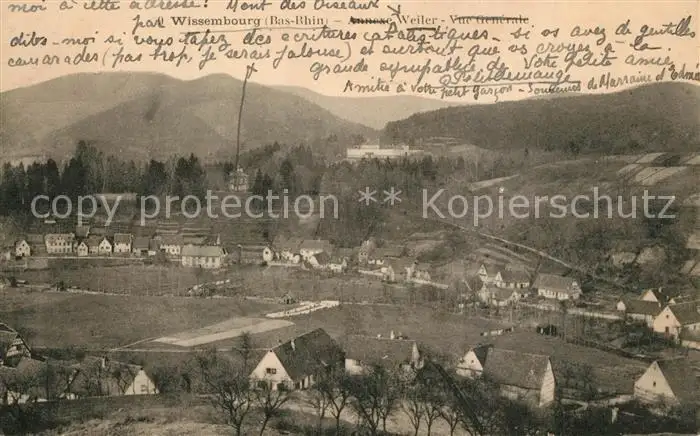 moi à cette adresse: Mont des Oiseaux
par Wissembourg (Bas-Rhin) – Annexe Weiler – Vue Générale
dites-moi si vous tapez des écritures si vous avez de gentilles
camarades (pas trop, je serais jalouse) et surtout que vous croyez à la
grande sympathie de Votre petite amie
Amitié à votre petit garçon – Souvenirs de Marraine d'
copyright ** Kepos Kartenschutz